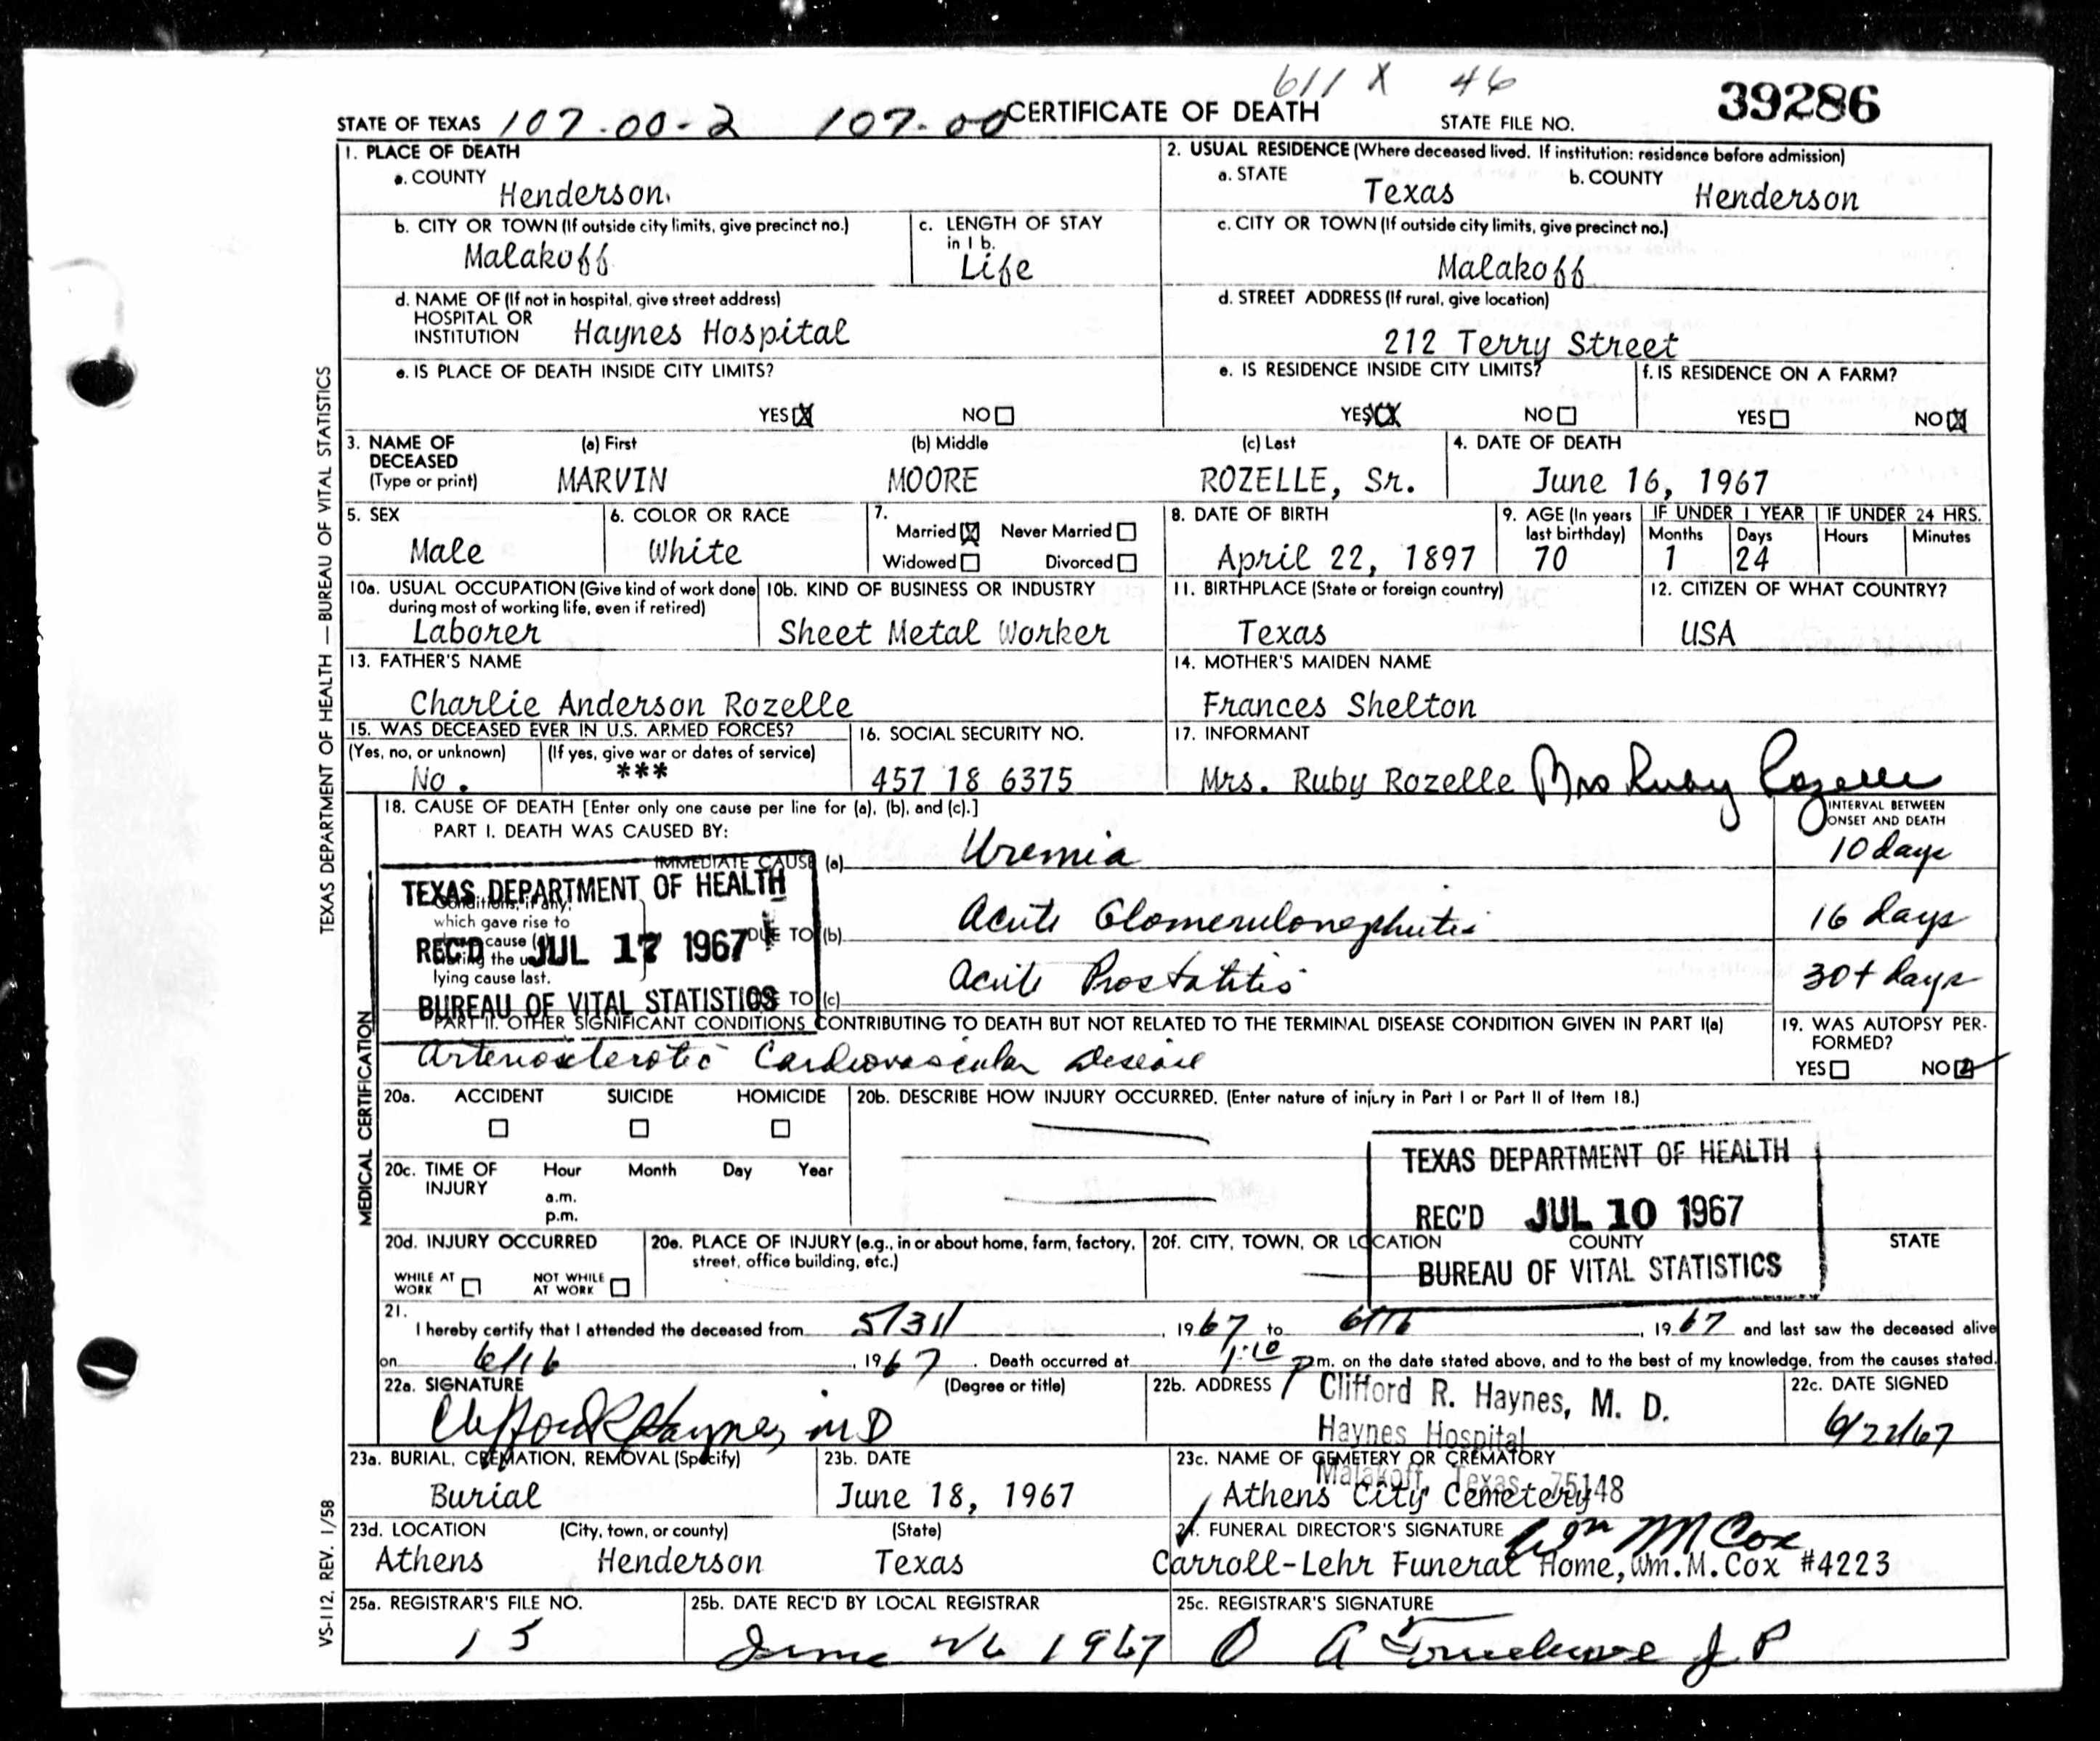 611 X 46
STATE OF TEXAS 107-00-2 107-00 CERTIFICATE OF DEATH STATE FILE NO. 39286
1. PLACE OF DEATH
a. COUNTY Henderson.
2. USUAL RESIDENCE (Where deceased lived. If institution: residence before admission)
a. STATE Texas b. COUNTY Henderson
b. CITY OR TOWN (If outside city limits, give precinct no.) Malakoff
c. LENGTH OF STAY in 1 b. Life
c. CITY OR TOWN (If outside city limits, give precinct no.) Malakoff
d. NAME OF (If not in hospital, give street address) HOSPITAL OR INSTITUTION Haynes Hospital
d. STREET ADDRESS (If rural, give location) 212 Terry Street
e. IS PLACE OF DEATH INSIDE CITY LIMITS? YES X NO
e. IS RESIDENCE INSIDE CITY LIMITS? YES X NO
f. IS RESIDENCE ON A FARM? YES NO X
3. NAME OF DECEASED (Type or print) (a) First MARVIN (b) Middle MOORE (c) Last ROZELLE, Sr.
4. DATE OF DEATH June 16, 1967
5. SEX Male
6. COLOR OR RACE White
7. Married X Never Married Widowed Divorced
8. DATE OF BIRTH April 22, 1897
9. AGE (In years last birthday) 70
IF UNDER 1 YEAR Months 1 Days 24
IF UNDER 24 HRS. Hours Minutes
10a. USUAL OCCUPATION (Give kind of work done during most of working life, even if retired) Laborer
10b. KIND OF BUSINESS OR INDUSTRY Sheet Metal Worker
11. BIRTHPLACE (State or foreign country) Texas
12. CITIZEN OF WHAT COUNTRY? USA
13. FATHER'S NAME Charlie Anderson Rozelle
14. MOTHER'S MAIDEN NAME Frances Shelton
15. WAS DECEASED EVER IN U.S. ARMED FORCES?
(Yes, no, or unknown) No. (If yes, give war or dates of service) ***
16. SOCIAL SECURITY NO. 457 18 6375
17. INFORMANT Mrs. Ruby Rozelle Mrs Ruby Rozelle
18. CAUSE OF DEATH [Enter only one cause per line for (a), (b), and (c).]
PART I. DEATH WAS CAUSED BY:
INTERVAL BETWEEN ONSET AND DEATH
IMMEDIATE CAUSE (a) Uremia 10 days
Conditions, if any, which gave rise to cause the lying cause last.
DUE TO (b) Acute Glomerulonephritis 16 days
TO (c) Acute Prostatitis 30+ days
TEXAS DEPARTMENT OF HEALTH
REC'D JUL 17 1967
BUREAU OF VITAL STATISTICS
PART II. OTHER SIGNIFICANT CONDITIONS CONTRIBUTING TO DEATH BUT NOT RELATED TO THE TERMINAL DISEASE CONDITION GIVEN IN PART I(a)
Arteriosclerotic Cardiovascular Disease
19. WAS AUTOPSY PERFORMED? YES NO
20a. ACCIDENT SUICIDE HOMICIDE
20b. DESCRIBE HOW INJURY OCCURRED. (Enter nature of injury in Part I or Part II of Item 18.)
20c. TIME OF INJURY Hour Month Day Year
a.m.
p.m.
TEXAS DEPARTMENT OF HEALTH
REC'D JUL 10 1967
BUREAU OF VITAL STATISTICS
20d. INJURY OCCURRED WHILE AT WORK NOT WHILE AT WORK
20e. PLACE OF INJURY (e.g., in or about home, farm, factory, street, office building, etc.)
20f. CITY, TOWN, OR LOCATION COUNTY STATE
21. I hereby certify that I attended the deceased from 5/31/, 1967 to 6/16, 1967 and last saw the deceased alive
on 6/16, 1967. Death occurred at 1:10 p m. on the date stated above, and to the best of my knowledge, from the causes stated.
22a. SIGNATURE (Degree or title) Clifford R Haynes, MD
22b. ADDRESS Clifford R. Haynes, M. D.
Haynes Hospital
Malakoff, Texas 75148
22c. DATE SIGNED 6/22/67
23a. BURIAL, CREMATION, REMOVAL (Specify) Burial
23b. DATE June 18, 1967
23c. NAME OF CEMETERY OR CREMATORY Athens City Cemetery
23d. LOCATION (City, town, or county) (State)
Athens Henderson Texas
24. FUNERAL DIRECTOR'S SIGNATURE Wm M Cox
Carroll-Lehr Funeral Home, Wm. M. Cox #4223
25a. REGISTRAR'S FILE NO. 15
25b. DATE REC'D BY LOCAL REGISTRAR June 26 1967
25c. REGISTRAR'S SIGNATURE O A J P
TEXAS DEPARTMENT OF HEALTH — BUREAU OF VITAL STATISTICS
MEDICAL CERTIFICATION
VS-112, REV. 1/58